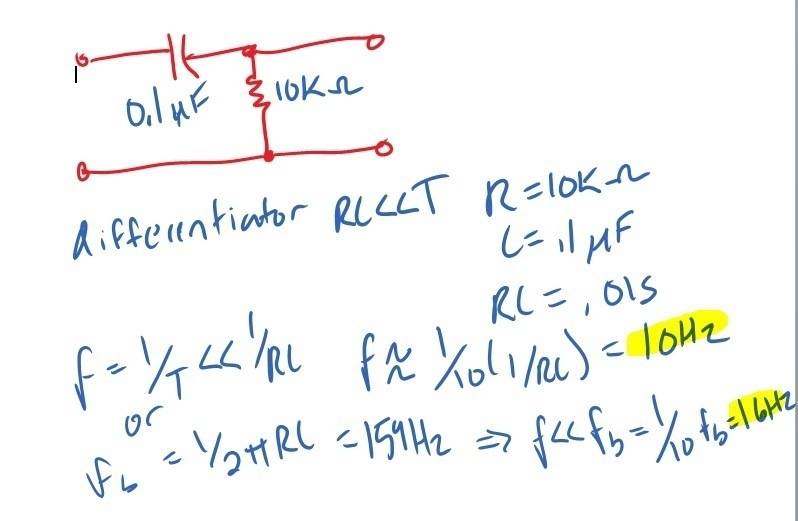 0.1μF 10KΩ
differentiator RC<<T R=10KΩ
C=.1μF
RC=.01s
f=1/T<<1/RC f≈1/10(1/RC)=10Hz
or
fb=1/2πRC=159Hz⇒f<<fb=1/10fb=16Hz